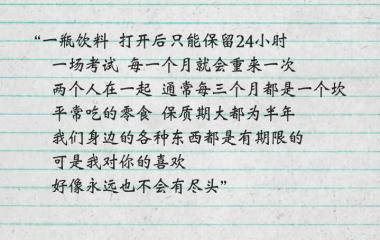 “一瓶饮料 打开后只能保留24小时
一场考试 每一个月就会重来一次
两个人在一起 通常每三个月都是一个坎
平常吃的零食 保质期大都为半年
我们身边的各种东西都是有期限的
可是我对你的喜欢
好像永远也不会有尽头”